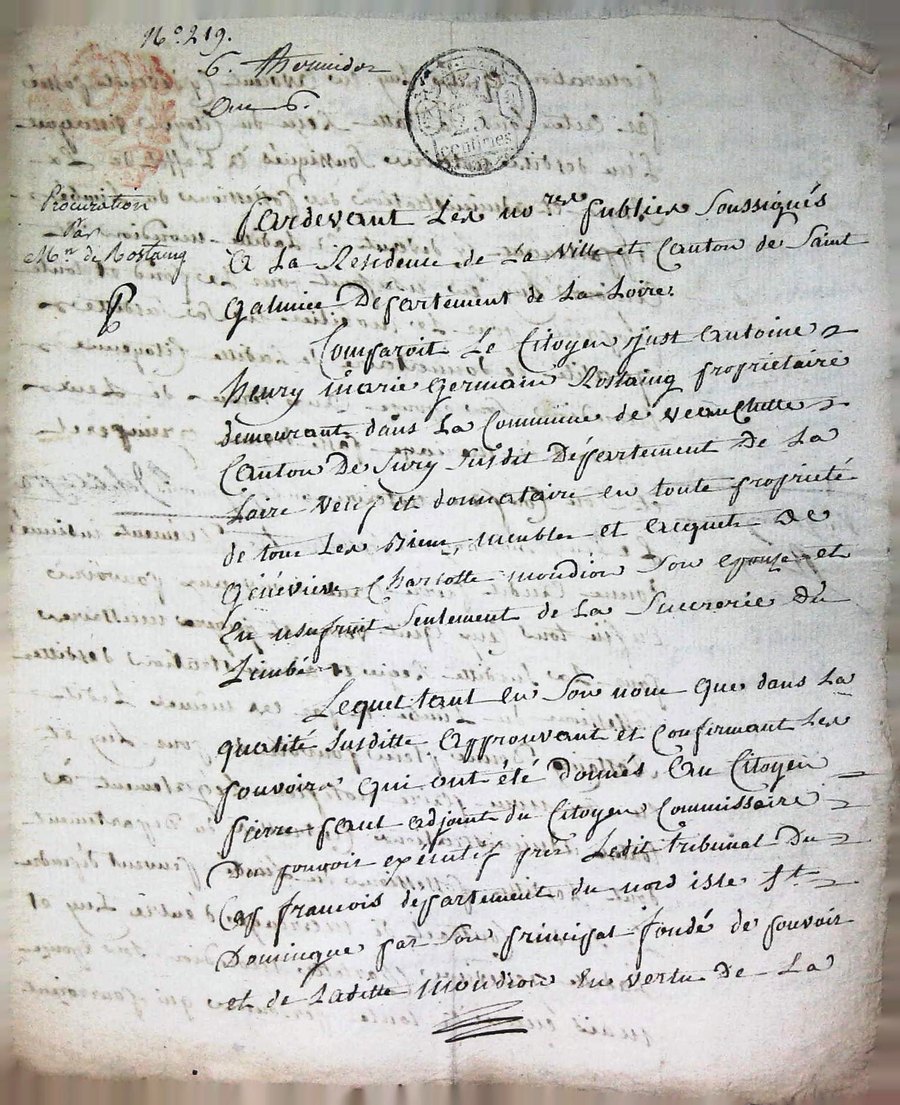 N.º 219.
6 thermidor
Due 6.
centimes
Procuration
Par
Mr. de Rostaing
Pardevant Les no.res publics Soussignés
A La Residence de La Ville et Canton de Saint
Galmier Departement de La Loire.
Comparoit Le Citoyen just antoine
henry marie Germain Rostaing proprietaire
demeurant dans La Commune de Veauchette
Canton De Sury Susdit Département De La
Loire Veuf et donnataire en toute proprieté
de tous Les Biens, meubles et acquets De
Géneviève Charlotte mondion Son epouse et
En usufruit Seulement de La Sucrerie Du
Limbé
Lequel tant en Son nom que dans La
qualité Susditte Approuvant et Confirmant Les
pouvoirs qui ont été donnés au Citoyen
pierre paul adjoint du Citoyen Commissaire
Du pouvoir exécutif près Ledit tribunal Du
Cap francois departement du nord isle St.
Domingue par Son principal fondé de pouvoir
et de Laditte mondion En vertu De La